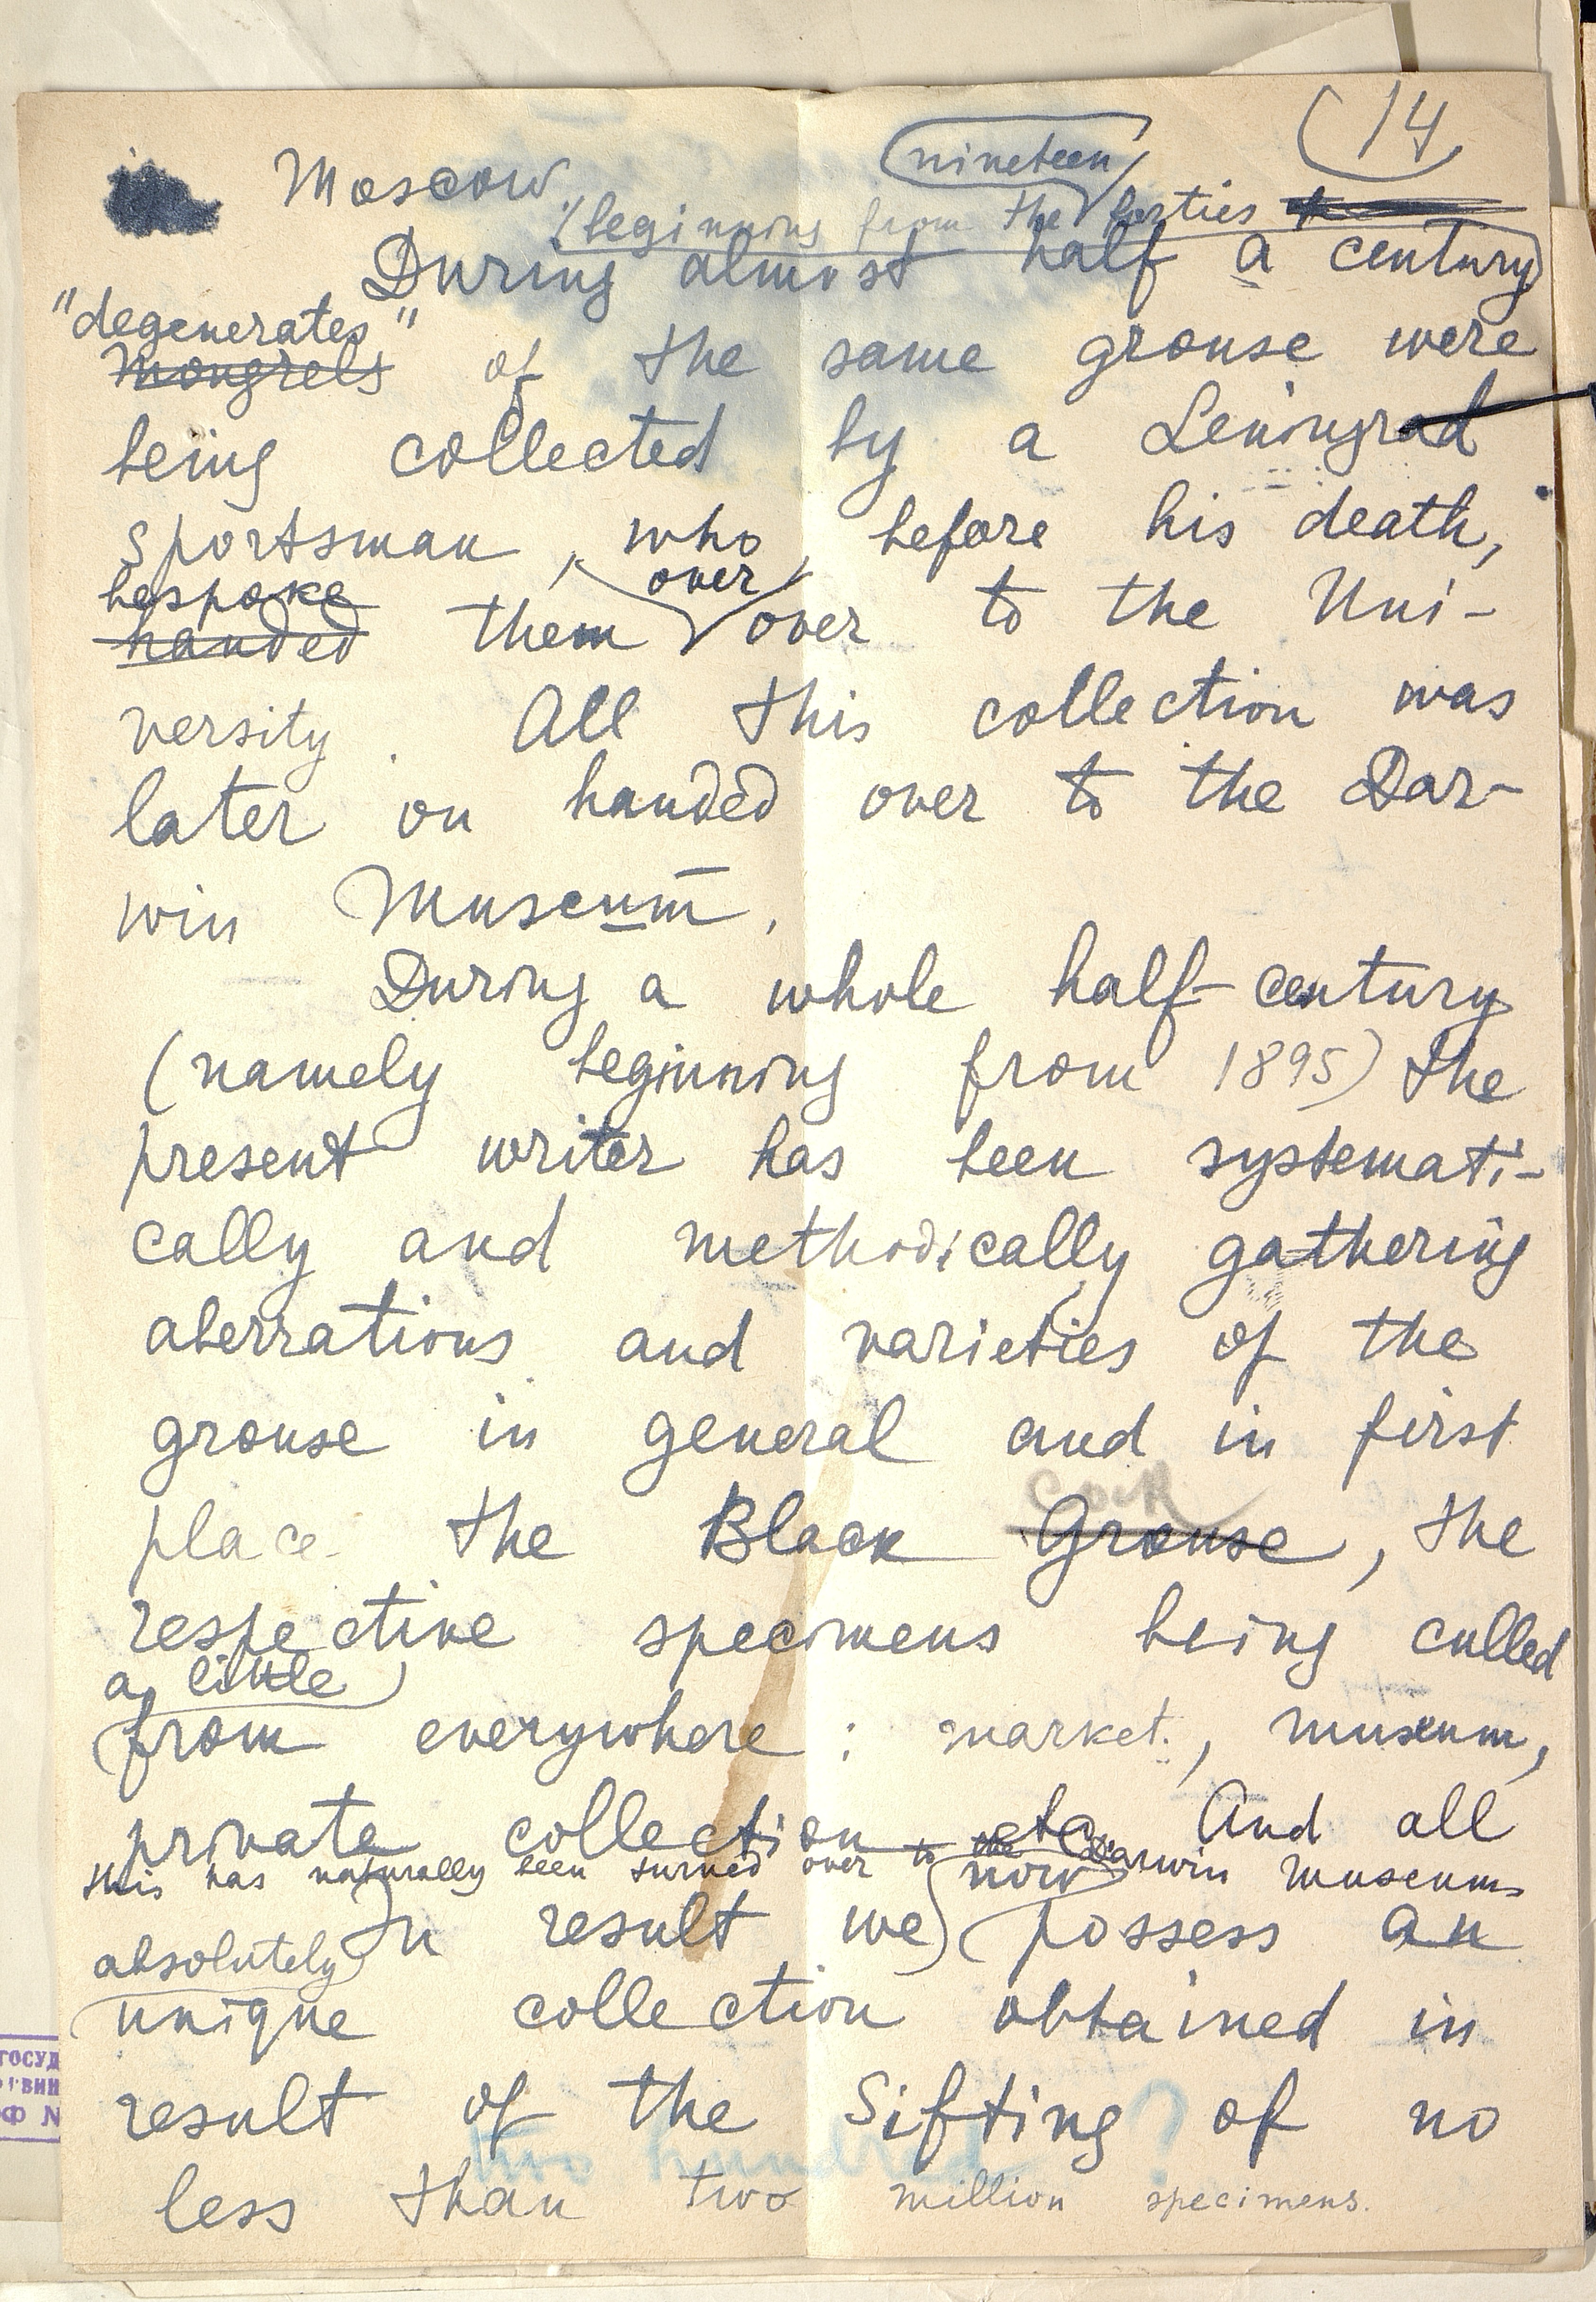 (14
Moscow
nineteen
(beginning from the forties
During almost half a century)
"degenerates"
mongrels of the same grouse were
being collected by a Leningrad
sportsman, who, before his death,
bespoke over
handed them over to the Uni-
versity. All this collection was
later on handed over to the Dar-
win Museum.
During a whole half-century
(namely beginning from 1895) the
present writer has been systemati-
cally and methodically gathering
aberrations and varieties of the
grouse in general and in first
Cock
place the Black Grouse, the
respective specimens being culled
a little
from everywhere: market, museum,
private collection etc. And all
this has naturally been turned over to the Darwin Museum
now
In result we possess an
absolutely
unique collection obtained in
result of the Sifting ? of no
two hundred
less than two million specimens.
ГОСУД
ВИН
Ф №